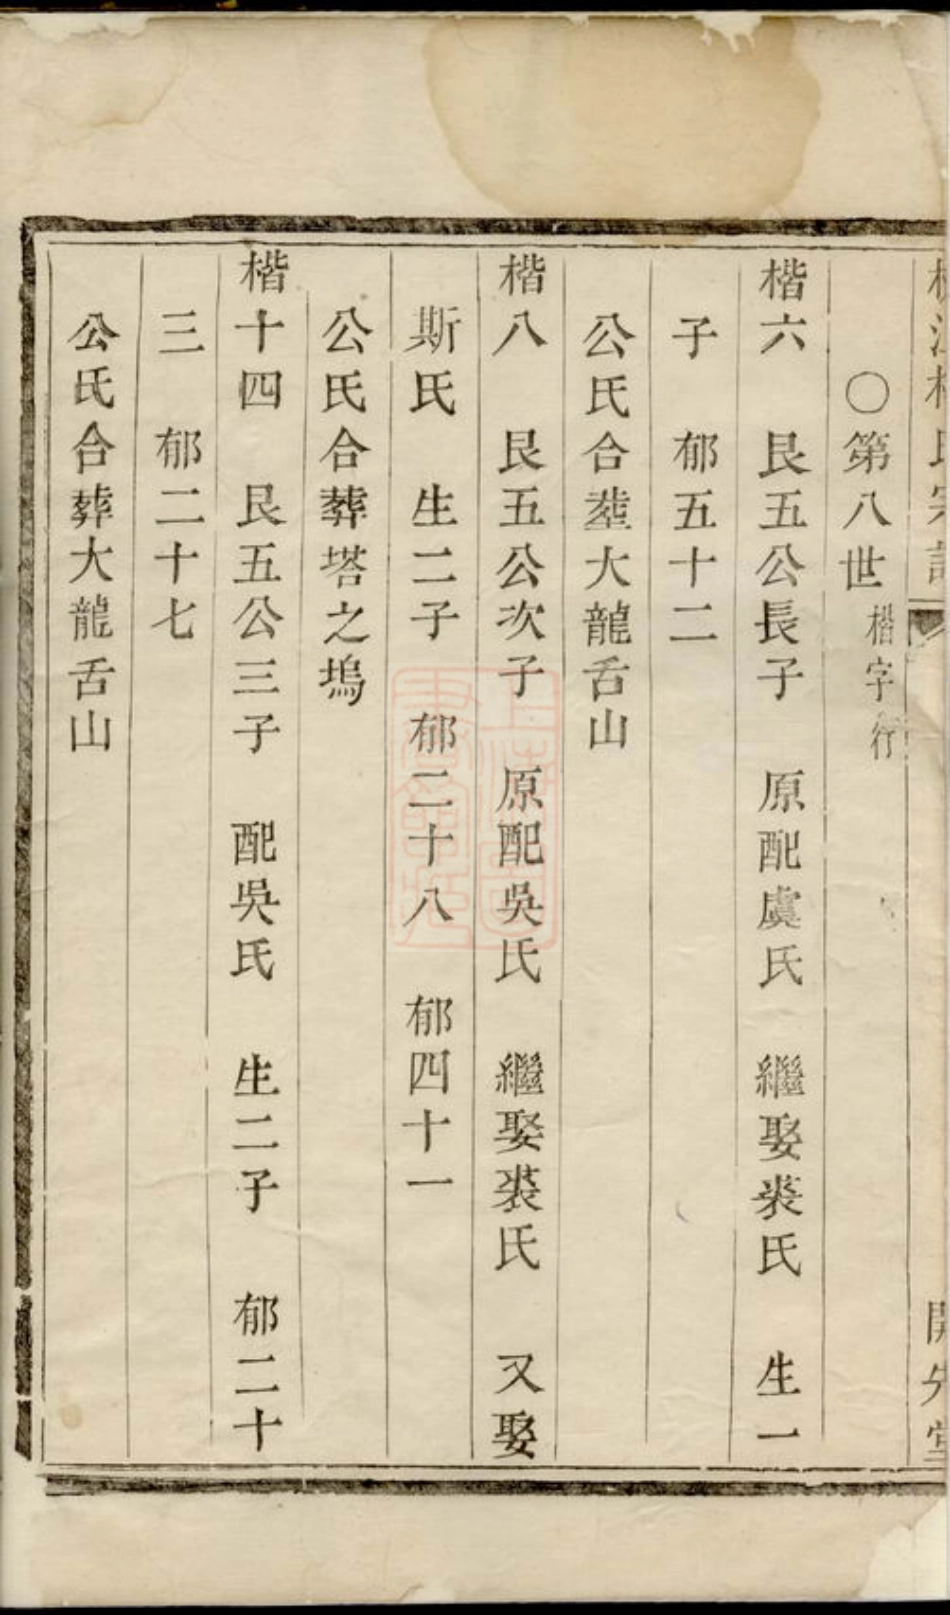 ○第八世 楷字行
楷六 艮五公長子 原配虞氏 繼娶裘氏 生一
子 郁五十二
公氏合塟大龍舌山
楷八 艮五公次子 原配吳氏 繼娶裘氏 又娶
斯氏 生二子 郁二十八 郁四十一
公氏合葬塔之塢
楷十四 艮五公三子 配吳氏 生二子 郁二十
三 郁二十七
公氏合葬大龍舌山